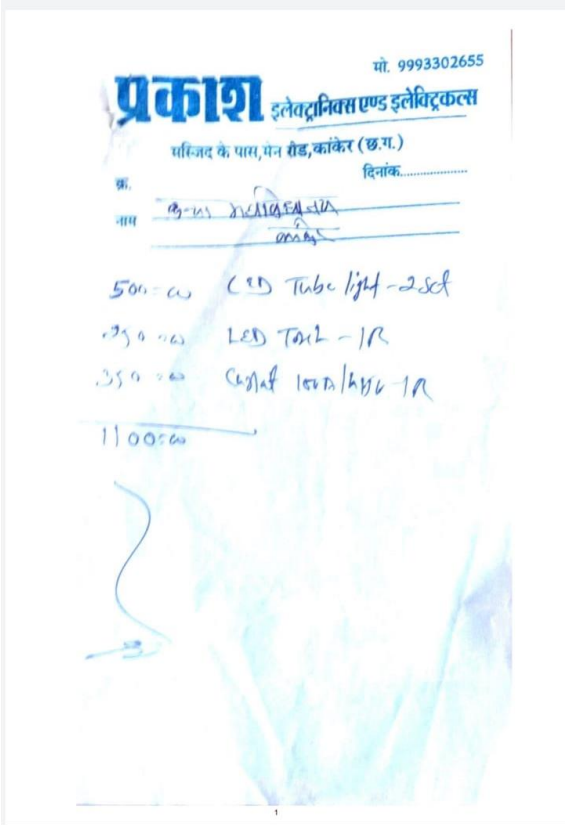 मो. 9993302655
प्रकाश इलेक्ट्रानिक्स एण्ड इलेक्ट्रिकल्स
मस्जिद के पास, मेन रोड, कांकेर (छ.ग.)
क्र. दिनांक..................
नाम कन्या महाविद्यालय
कांकेर
500=00 LED Tube light - 2 Set
250=00 LED - 1R
350=00 - 1R
1100=00
1